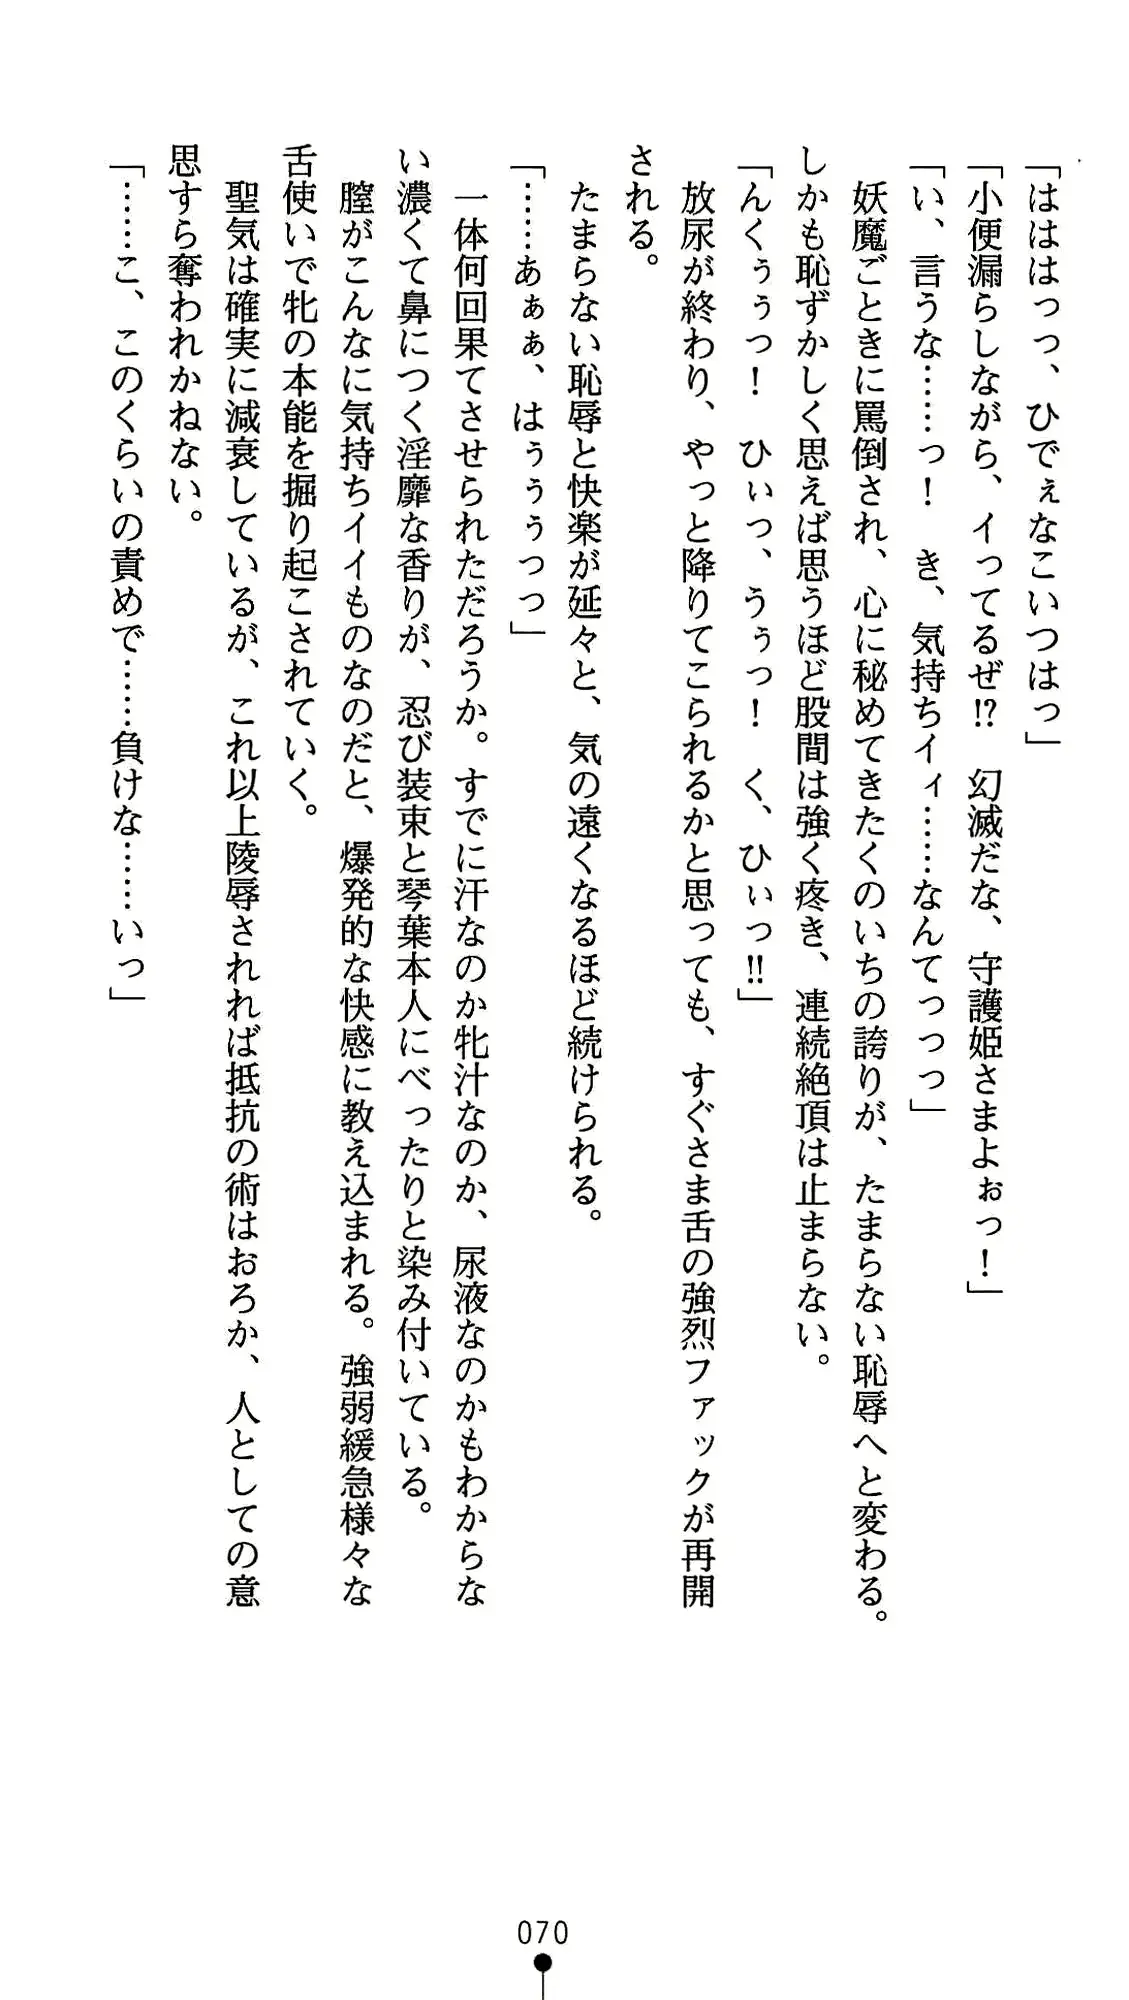 「はははっっ、ひでぇなこいつはっ」
「小便漏らしながら、イってるぜ!?　幻滅だな、守護姫さまよぉっ！」
「い、言うな……っ！　き、気持ちイィ……なんてっっっ」
　妖魔ごときに罵倒され、心に秘めてきたくのいちの誇りが、たまらない恥辱へと変わる。
しかも恥ずかしく思えば思うほど股間は強く疼き、連続絶頂は止まらない。
「んくぅぅっ！　ひぃっ、うぅっ！　く、ひぃっ!!」
　放尿が終わり、やっと降りてこられるかと思っても、すぐさま舌の強烈ファックが再開
される。
　たまらない恥辱と快楽が延々と、気の遠くなるほど続けられる。
「……あぁぁ、はぅぅぅっっ」
　一体何回果てさせられただろうか。すでに汗なのか牝汁なのか、尿液なのかもわからな
い濃くて鼻につく淫靡な香りが、忍び装束と琴葉本人にべったりと染み付いている。
　膣がこんなに気持ちイイものなのだと、爆発的な快感に教え込まれる。強弱緩急様々な
舌使いで牝の本能を掘り起こされていく。
　聖気は確実に減衰しているが、これ以上陵辱されれば抵抗の術はおろか、人としての意
思すら奪われかねない。
「……こ、このくらいの責めで……負けな……いっ」
070